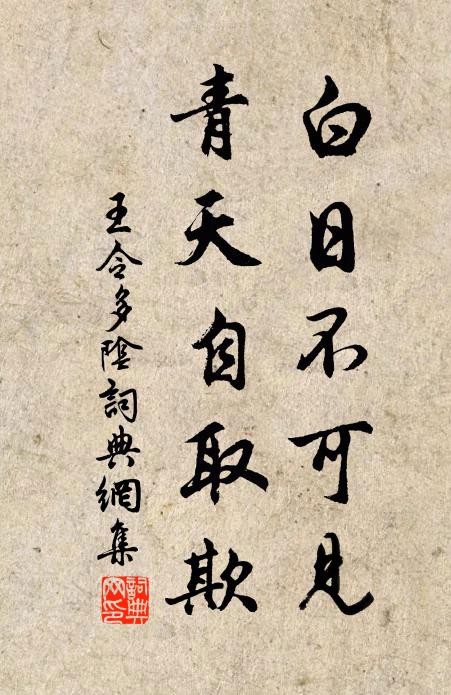 白日不可見
青天自取欺
王令多陰詞典網集
詞典
網印